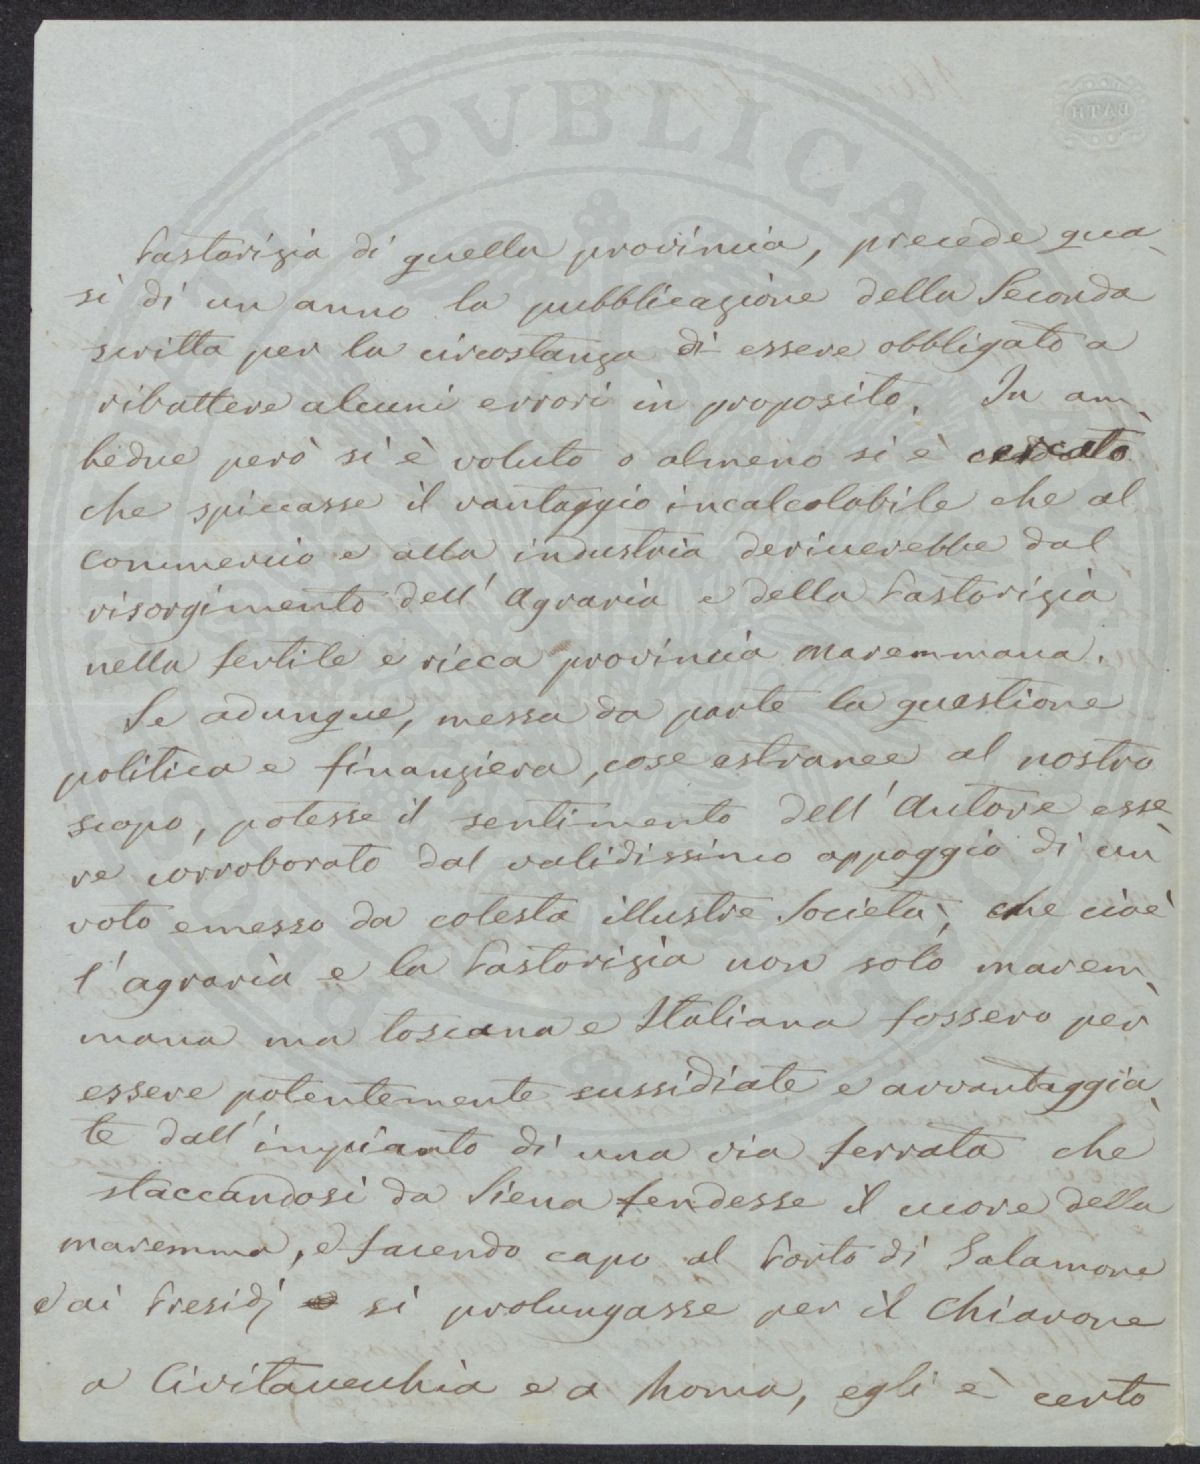 BATH
Pastorizia di quella provincia, precede qua-
si di un anno la pubblicazione della Seconda
scritta per la circostanza di essere obbligato a
ribattere alcuni errori in proposito. In am-
bedue però si è voluto o almeno si è cercato
che spiccasse il vantaggio incalcolabile che al
commercio e alla industria deriverebbe dal
risorgimento dell'Agraria e della Pastorizia
nella fertile e ricca provincia maremmana.
Se adunque, messa da parte la questione
politica e finanziera, cose estranee al nostro
scopo, potesse il sentimento dell'Autore esse-
re corroborato dal validissimo appoggio di un
voto emesso da cotesta illustre Società, che cioè
l'agraria e la Pastorizia non solo marem-
mana ma toscana e Italiana fossero per
essere potentemente sussidiate e avvantaggia-
te dall'impianto di una via ferrata che
staccandosi da Siena fendesse il cuore della
maremma, e facendo capo al Porto di Talamone
e ai Presidj si prolungasse per il Chiarone
a Civitavecchia e a Roma, egli è certo